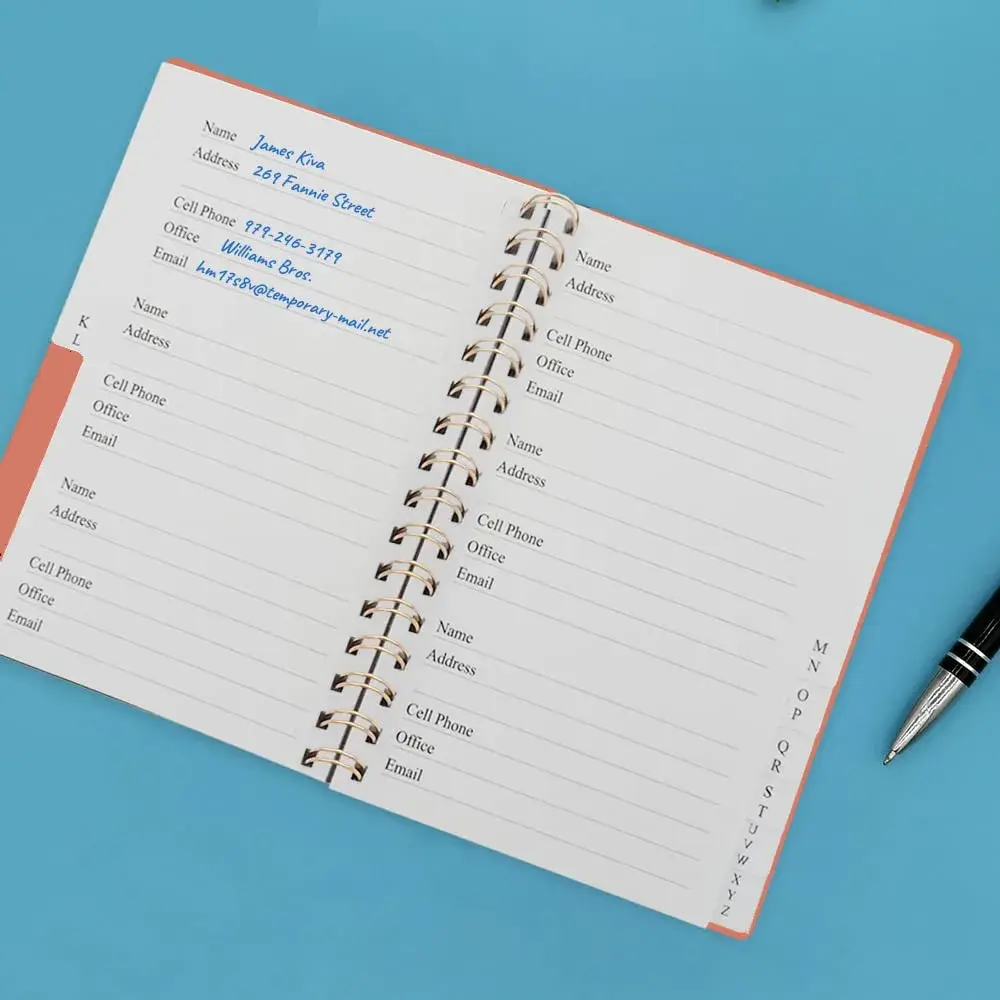 Name James Kiva
Address 269 Fannie Street
Cell Phone 979-246-3179
Office Williams Bros.
Email hm17s8v@temporary-mail.net
Name
Address
Cell Phone
Office
Email
Name
Address
Cell Phone
Office
Email
K
L
Name
Address
Cell Phone
Office
Email
Name
Address
Cell Phone
Office
Email
Name
Address
Cell Phone
Office
Email
M
N
O
P
Q
R
S
T
U
V
W
X
Y
Z